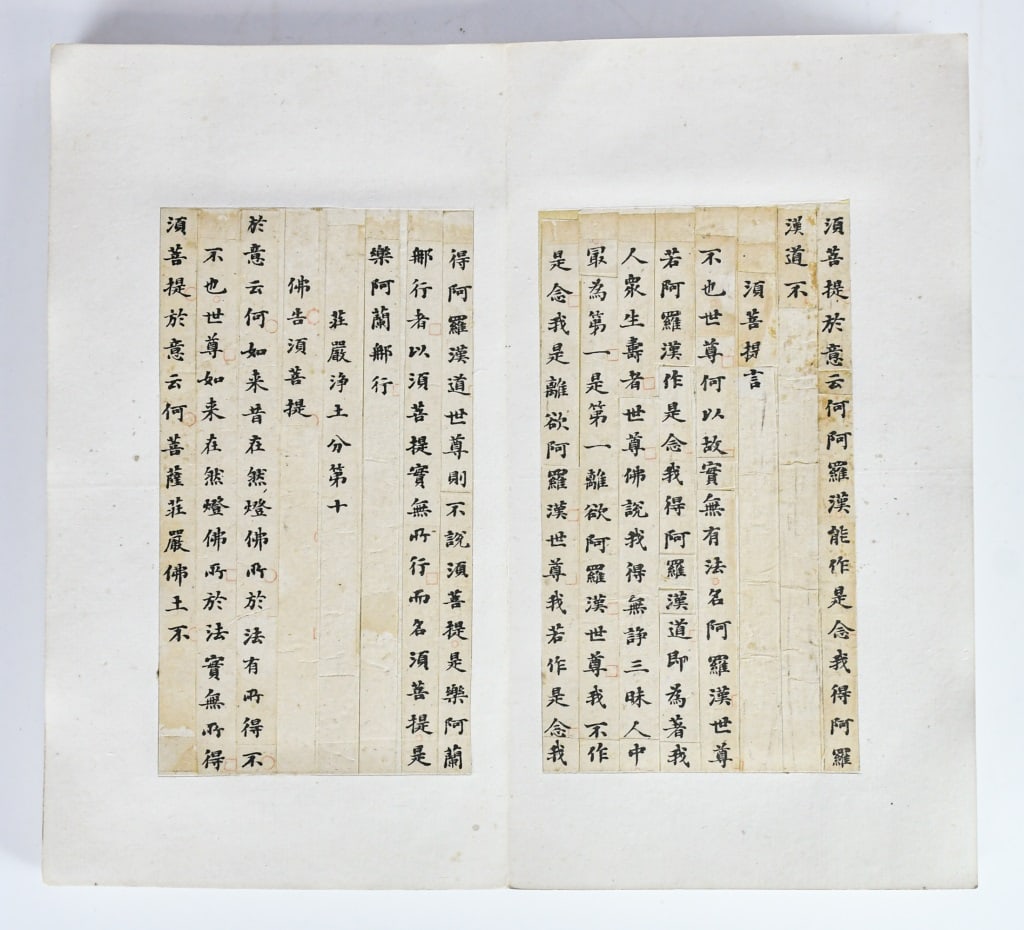 須菩提於意云何阿羅漢能作是念我得阿羅
漢道不
須菩提言
不也世尊何以故實無有法名阿羅漢世尊
若阿羅漢作是念我得阿羅漢道即為著我
人衆生壽者世尊佛說我得無諍三昧人中
冣為第一是第一離欲阿羅漢世尊我不作
是念我是離欲阿羅漢世尊我若作是念我
得阿羅漢道世尊則不說須菩提是樂阿蘭
那行者以須菩提實無所行而名須菩提是
樂阿蘭那行
莊嚴淨土分第十
佛告須菩提
於意云何如来昔在然燈佛所於法有所得不
不也世尊如来在然燈佛所於法實無所得
須菩提於意云何菩薩莊嚴佛土不